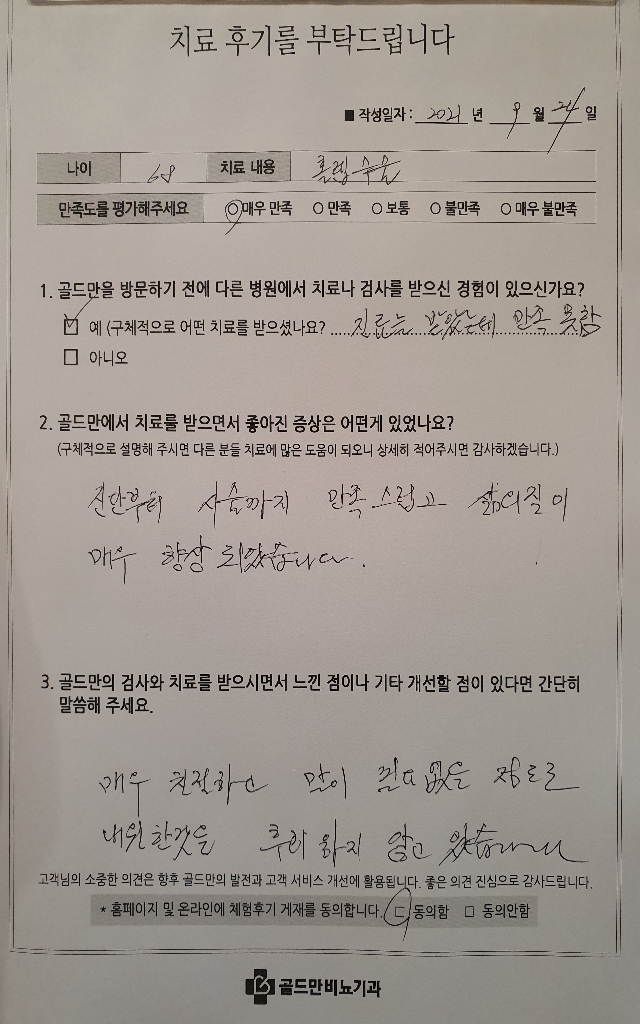 치료 후기를 부탁드립니다
■ 작성일자 : 2021 년 9 월 24 일
나이 68 치료 내용 홀렙수술
만족도를 평가해주세요 매우 만족 만족 보통 불만족 매우 불만족
1. 골드만을 방문하기 전에 다른 병원에서 치료나 검사를 받으신 경험이 있으신가요?
예 (구체적으로 어떤 치료를 받으셨나요? 진료는 받았는데 만족 못함
아니오
2. 골드만에서 치료를 받으면서 좋아진 증상은 어떤게 있었나요?
(구체적으로 설명해 주시면 다른 분들 치료에 많은 도움이 되오니 상세히 적어주시면 감사하겠습니다.)
진단부터 사슬까지 만족스럽고 삶의질이
매우 향상 되었습니다.
3. 골드만의 검사와 치료를 받으시면서 느낀 점이나 기타 개선할 점이 있다면 간단히
말씀해 주세요.
매우 친절하고 말이 필요없을 정도로
내원한것을 후회 하지 않고 있습니다
고객님의 소중한 의견은 향후 골드만의 발전과 고객 서비스 개선에 활용됩니다. 좋은 의견 진심으로 감사드립니다.
* 홈페이지 및 온라인에 체험후기 게재를 동의합니다. 동의함 동의안함
골드만비뇨기과